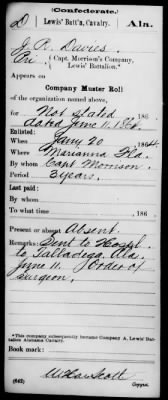 (Confederate.)
D Lewis' Batt'n, Cavalry. Ala.
J. R. Davies
Pri (Capt. Morrison's Company,
Lewis' Battalion.*
Appears on
Company Muster Roll
of the organization named above,
for Not stated 186 .
dated June 11, 1864.
Enlisted:
When Jany 20 1864.
Where Marianna Fla.
By whom Capt Morrison
Period 3 years.
Last paid:
By whom
To what time , 186 .
Present or absent Absent.
Remarks: Sent to Hospl
to Talladega, Ala.
June 11. Order of
surgeon.
*This company subsequently became Company A, Lewis' Battalion Alabama Cavalry.
Book mark:
(642) Copyist.